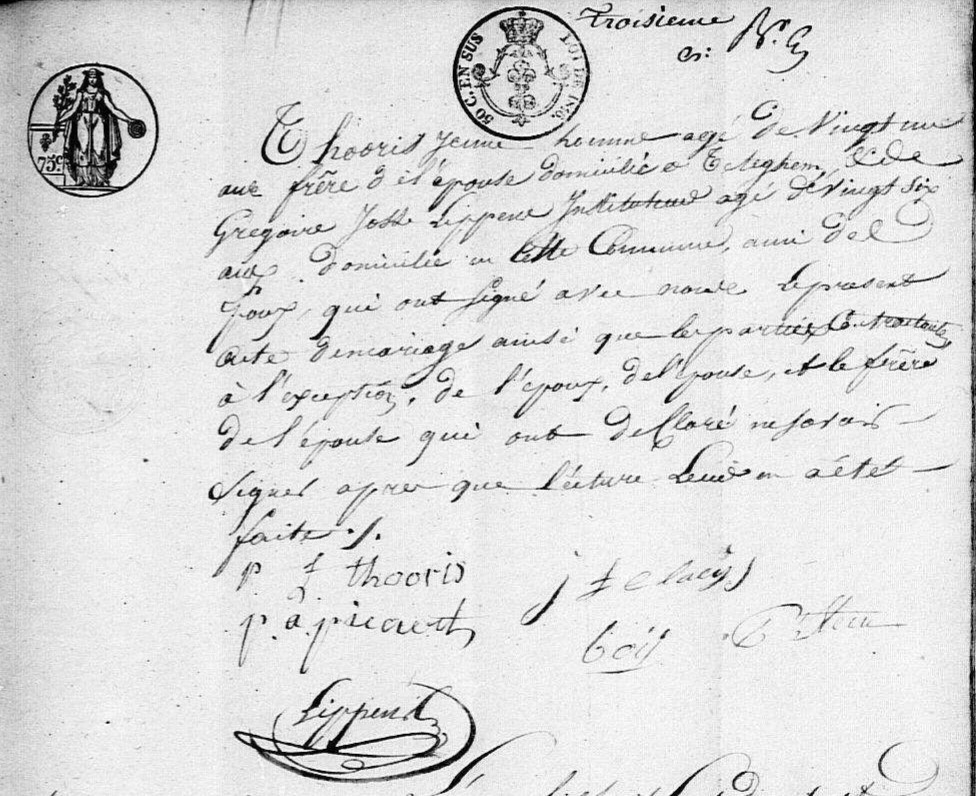 Troisieme
50 C. EN SUS
LOI DE
75 c.
Thooris jeune homme agé de Vingt neuf
ans frère de l'épouse domicilié a Eeleghem, & de
Gregoire Josse Lippens Instituteur agé de Vingt six
ans domicilié en cette Commune, ami de l'
Epoux, qui ont signé avec nous le present
acte de mariage ainsi que les parties Contractantes
à l'exception, de l'époux, de l'épouse, et le frère
de l'épouse qui ont declaré ne savoir
signer apres que lecture Leur en a été
faite ./.
p f thooris
j f Claeijs
p. a. picavet
Lippens